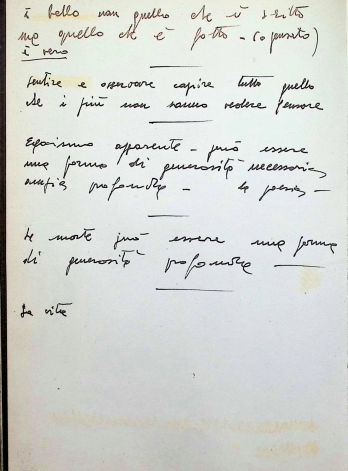 è bello non quello che è scritto
ma quello che è fatto - (o pensato)
è vero
sentire e osservare capire tutto quello
che i più non sanno vedere pensare
Egoismo apparente - può essere
una forma di generosità necessaria
profonda - la poesia -
La morte può essere una forma
di generosità profonda
La vita